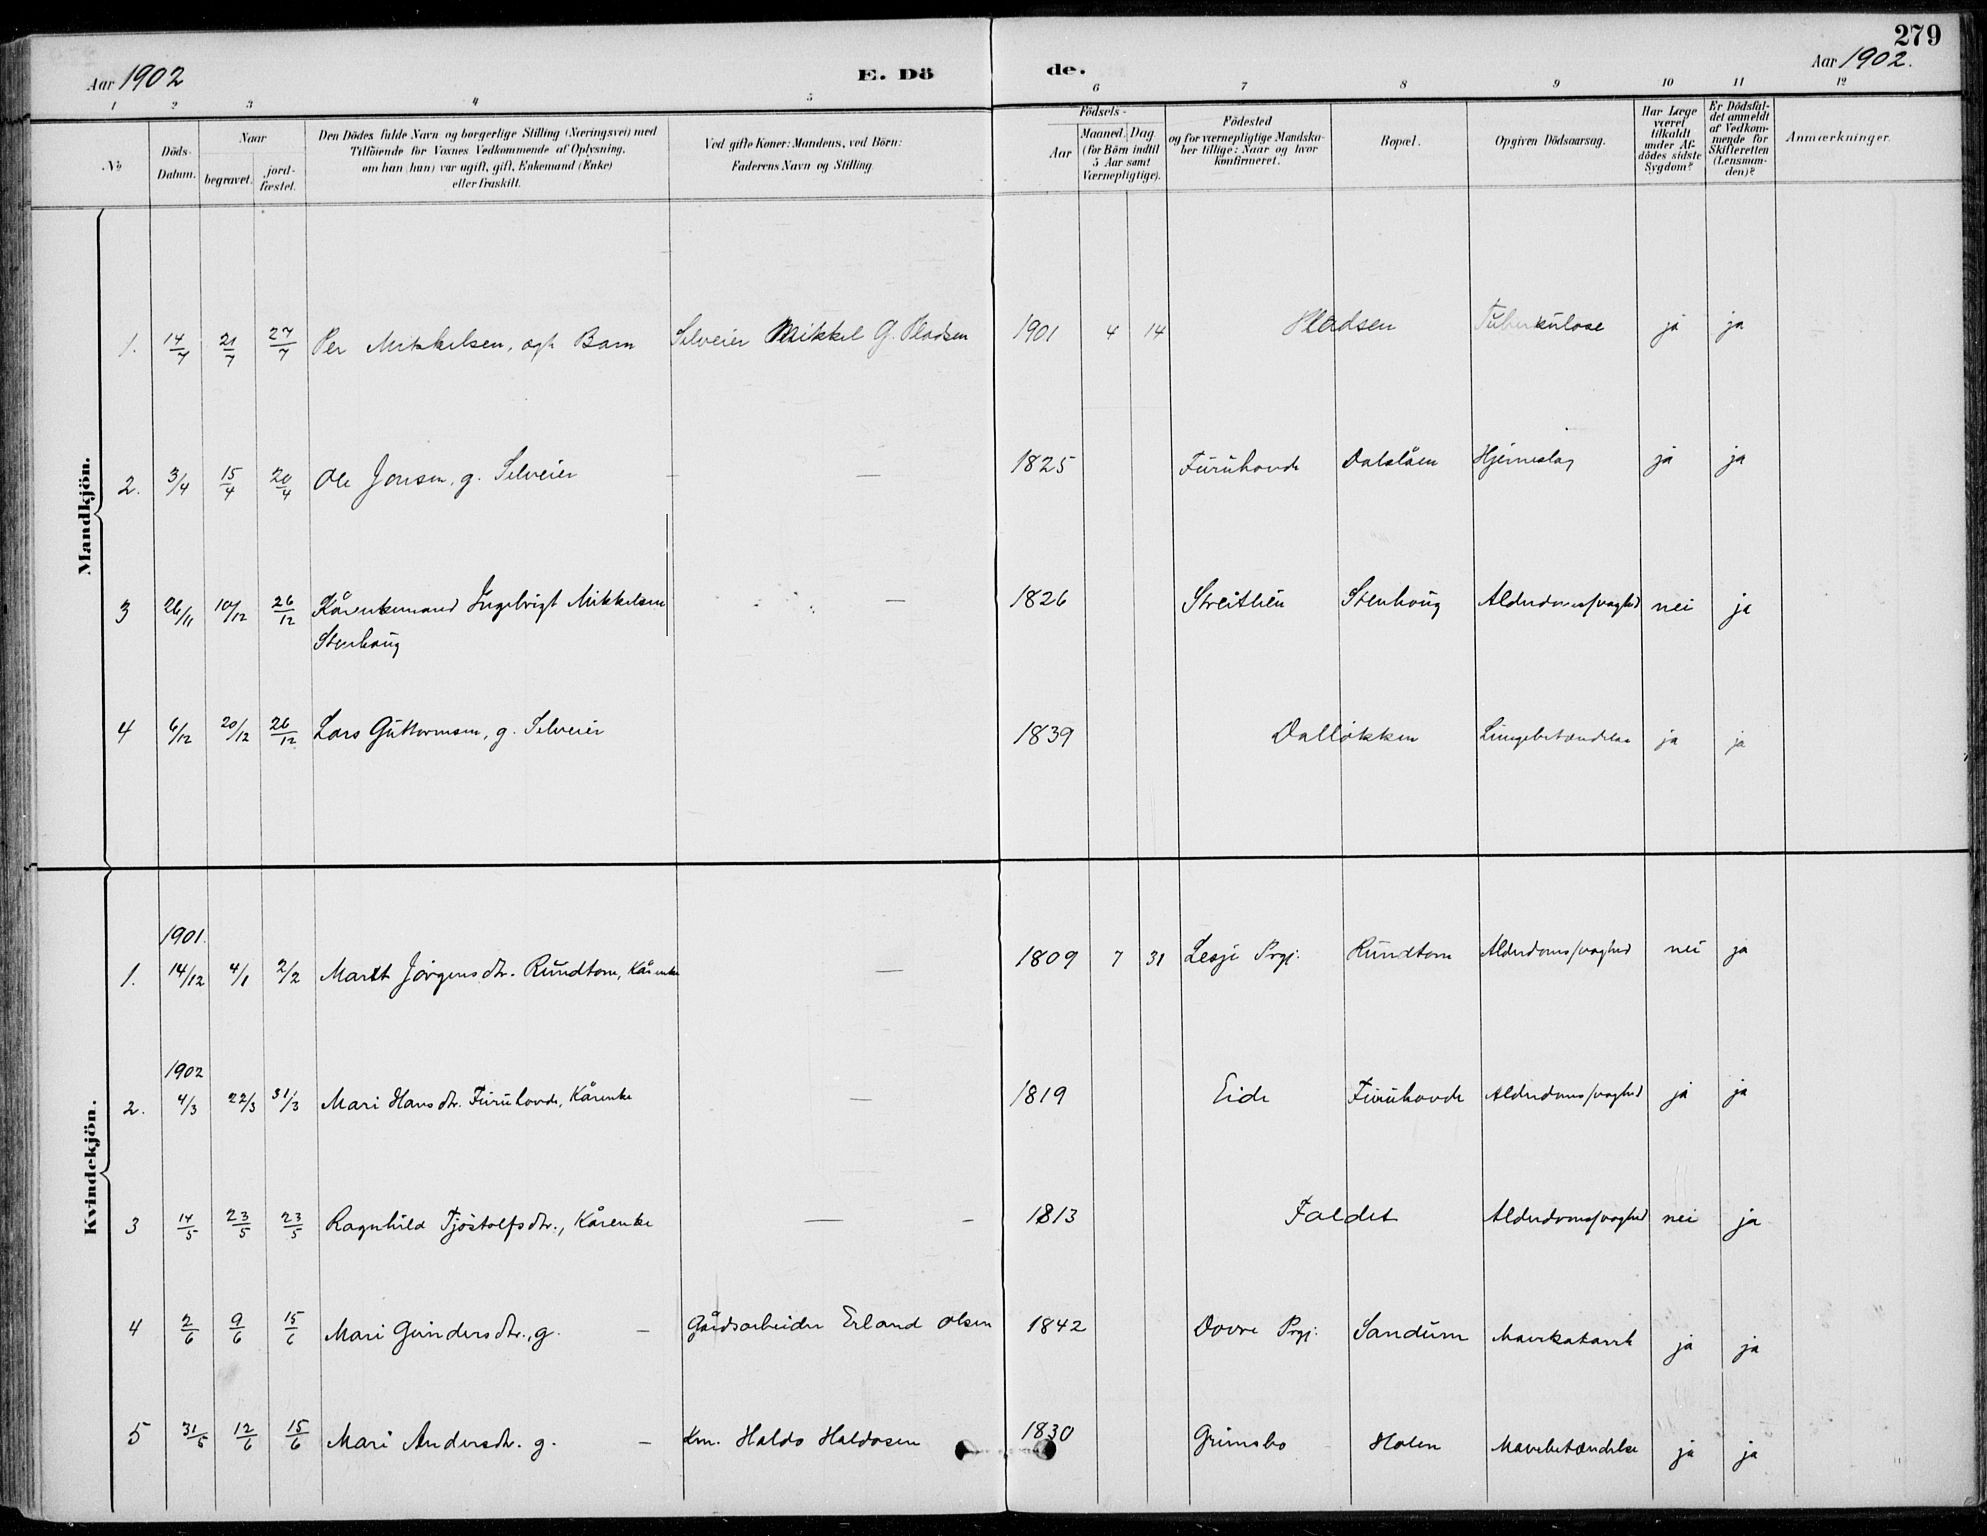 279
Aar 1902
E. Dö
de.
Aar 1902.
1 2 3 4 5 6 7 8 9 10 11 12
No
Döds-Datum.
Naar
begravet.
jord-fæstet.
Den Dödes fulde Navn og borgerlige Stilling (Næringsvei) med
Tilföiende for Voxnes Vedkommende af Oplysning,
om han (hun) var ugift, gift, Enkemand (Enke)
eller fraskilt.
Ved gifte Koner: Mandens, ved Börn:
Faderens Navn og Stilling.
Födsels-
Aar
Maaned. Dag
(for Börn indtil
5 Aar samt
Værnepligtige).
Födested
og for værnepligtige Mandska-
ber tillige: Naar og hvor
konfirmeret.
Bopæl.
Opgiven Dödsaarsag.
Har Læge
været
tilkaldt
under Af-
dödes sidste
Sygdom?
Er Dödsfal-
det anmeldt
af Vedkom-
mende for
Skifteretten
(Lensman-
den)?
Anmærkninger.
Mandkjön.
1. 14/7 21/7 27/7 Per Mikkelsen, ægt Barn Selveier Mikkel G. Pladsen 1901 4 14 Pladsen Tuberkulose ja ja
2. 3/4 15/4 20/4 Ole Jonsen, g. Selveier — — 1825 Furuhovde Dalslåen Hjerneslag ja ja
3 26/11 10/12 26/12 Kårenkemand Ingebrigt Mikkelsen — 1826 Streitlien Stenhoug Alderdomssvaghed nei ja
Stenhoug
4 6/12 20/12 26/12 Lars Guttormsen, g. Selveier 1839 Dalløkken Lungebetændelse ja ja
Kvindekjön.
1901.
1. 14/12 4/1 2/2 Marit Jørgensdtr. Rundtom, Kårenke — 1809 7 31 Lesje Prgj. Rundtom Alderdomssvaghed nei ja
1902
2. 4/3 22/3 31/3 Mari Hansdtr. Furuhovde, Kårenke — 1819 Eide Furuhovde Alderdomssvaghed ja ja
3 14/5 23/5 23/5 Ragnhild Tjøstolfsdtr., Kårenke — — 1813 Faldet Alderdomssvaghed nei ja
4 2/6 9/6 15/6 Mari Gundersdtr., g. — Gårdsarbeider Erland Olsen 1842 Dovre Prgj. Sandum Mavekatarrh ja ja
5 31/5 12/6 15/6 Mari Andersdtr. g. — Km. Haldo Haldosen 1830 Grimsbo Holen Mavebetændelse ja ja